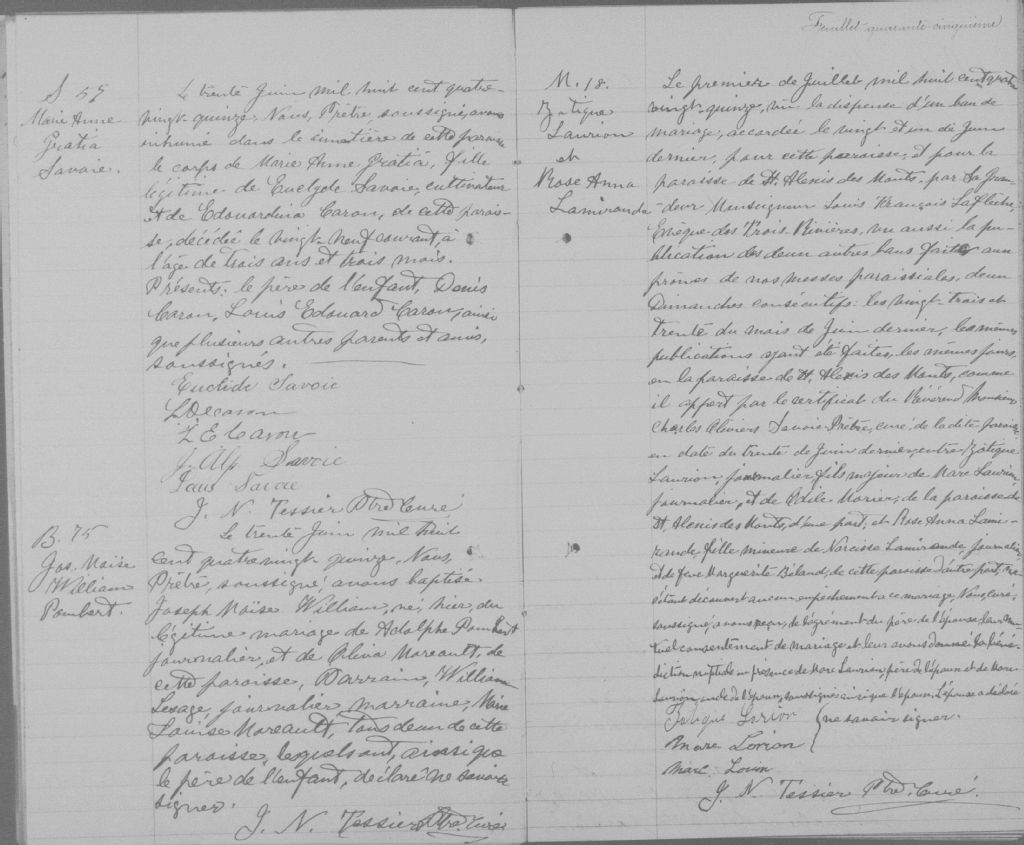 S 59
Marie Anne
Gratia
Savoie.
Le trente Juin mil huit cent quatre-
vingt-quinze. Nous, Prêtre, soussigné, avons
inhumé dans le cimetière de cette paroisse
le corps de Marie Anne Gratia, fille
légitime de Euclyde Savoie, cultivateur
et de Edouardina Caron, de cette parois-
se, décédée le vingt-neuf courant, à
l'âge de trois ans et trois mois.
Présents: le père de l'enfant, Denis
Caron, Louis Edouard Caron, ainsi
que plusieurs autres parents et amis,
soussignés.
Euclide Savoie
LDecaron
L E Caron
J. Alp Savoie
Savoie
J. N. Tessier Ptre Curé
B. 75
Jos. Moïse
William
Pombert
Le trente Juin mil huit
cent quatre vingt quinze, Nous,
Prêtre, soussigné, avons baptisé
Joseph Moïse William, né, hier, du
légitime mariage de Adolphe Pombert
journalier, et de Olivia Moreault, de
cette paroisse, Parrain, William
Lesage, journalier, marraine, Marie
Louise Moreault, tous deux de cette
paroisse, lesquels ont, ainsi que
le père de l'enfant, déclaré ne savoir
signer.
J. N. Tessier Ptre. Curé
Feuillet quarante-cinquième
M. 18.
Zotique
Laurion
et
Rose Anna
Lamirande
Le premier de Juillet mil huit cent quatre
vingt-quinze, vu la dispense d'un ban de
mariage, accordée le vingt et un de Juin
dernier, pour cette paroisse, et pour la
paroisse de St. Alexis des Monts, par Sa Gran-
deur Monseigneur Louis François Laflèche,
Evêque des Trois-Rivières, vu aussi la pu-
blication des deux autres bans faite aux
prônes de nos messes paroissiales, deux
Dimanches consécutifs: les vingt-trois et
trente du mois de Juin dernier, les mêmes
publications ayant été faites, les mêmes jours,
en la paroisse de St. Alexis des Monts, comme
il appert par le certificat du Révérend Monsieur
Charles Oliviers Savoie Prêtre, curé, de la dite paroisse
en date du trente de Juin dernier, entre Zotique
Laurion journalier, fils majeur de Marc Laurion
journalier, et de Odile Morier, de la paroisse de
St. Alexis des Monts, d'une part, et Rose Anna Lami-
rande, fille mineure de Narcisse Lamirande, journalier,
et de feue Marguerite Béland, de cette paroisse d'autre part, ne
s'étant découvert aucun empêchement à ce mariage, Nous, Curé,
soussigné, avons reçu, de l'agrément du père de l'épouse, leur mu-
tuel consentement de mariage et leur avons donné la béné-
diction nuptiale en présence de Marc Laurion, père de l'époux et de Marc
Laurion, oncle de l'époux, soussignés ainsi que l'époux. L'épouse a déclaré
ne savoir signer.
Zotique Lorion
Marc Lorion
Marc Lorion
J. N. Tessier Ptre. Curé.